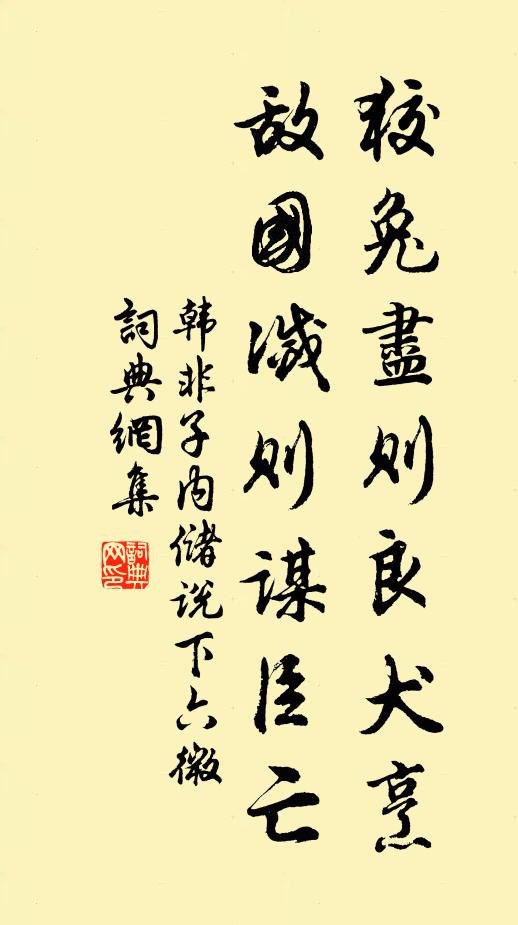 狡兔盡則良犬烹
敌國滅則謀臣亡
韩非子内儲说下六微
詞典網集
詞典网印